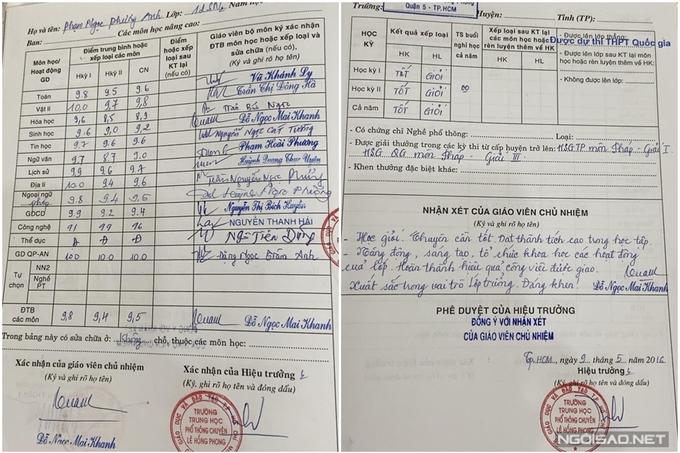 Họ và tên: Phạm Ngọc Phương Anh Lớp:
Ban: Các môn học nâng cao:
Môn học/ Hoạt động GD
Điểm trung bình hoặc xếp loại các môn
Hkỳ I Hkỳ II CN
Điểm hoặc xếp loại sau KT lại (nếu có)
Giáo viên bộ môn ký xác nhận ĐTB môn học hoặc xếp loại và sửa chữa (nếu có).
(Ký và ghi rõ họ tên)
Toán 9.8 9.5 9.6 Vũ Khánh Ly
Vật lí 10.0 9.7 9.8 Trần Thị Đông Hà
Hóa học 9,6 8,5 8,9
Sinh học 9.6 9.0 9.2 Đỗ Ngọc Mai Khanh
Tin học 9.7 9.6 9.6 Nguyễn Ngọc Cát Tường
Ngữ văn 9.7 8.7 9.0 Phạm Hoài Phương
Lịch sử 9.9 9.6 9.7
Địa lí 10.0 9.4 9.6 Trần Nguyễn Ngọc Phượng
Ngoại ngữ pháp 9.8 9.4 9.5 Huỳnh Ngọc Phượng
GDCD 9.9 9.2 9.4 Nguyễn Thị Bích
Công nghệ NGUYỄN THANH HẢI
Thể dục Đ Đ Đ Ngô Tiến Dũng
GD QP-AN 10.0 10.0 10.0 Đặng Ngọc Trâm Anh
Tự chọn
NN2
Nghề PT
ĐTB các môn 9,8 9,4 9,5 Đỗ Ngọc Mai Khanh
Trong bảng này có sửa chữa ở: Không chỗ, thuộc các môn học:
Xác nhận của giáo viên chủ nhiệm
(Ký và ghi rõ họ tên)
Đỗ Ngọc Mai Khanh
Xác nhận của Hiệu trưởng
(Ký, ghi rõ họ tên và đóng dấu)
TRƯỜNG
TRUNG HỌC
PHỔ THÔNG CHUYÊN
LÊ HỒNG PHONG
Trường:
Quận 5 - TP.HCM
Huyện: Tỉnh (TP):
HỌC KỲ
Kết quả xếp loại
HK HL
TS buổi nghỉ học cả năm
Xếp loại sau KT lại các môn học hoặc rèn luyện thêm về HK
HK HL
Được dự thi THPT Quốc gia
- Được lên lớp thẳng:
- Được lên lớp sau KT lại môn học hoặc rèn luyện thêm về HK:
- Không được lên lớp:
Học kỳ I TỐT GIỎI
Học kỳ II TỐT GIỎI
Cả năm TỐT GIỎI
- Có chứng chỉ Nghề phổ thông: Loại:
- Được giải thưởng trong các kỳ thi từ cấp huyện trở lên: HSG TP môn Pháp - Giải I
HSG QG môn Pháp - Giải III.
- Khen thưởng đặc biệt khác:
NHẬN XÉT CỦA GIÁO VIÊN CHỦ NHIỆM
(Ký và ghi rõ họ tên)
- Học giỏi. Chuyên cần tốt. Đạt thành tích cao trong học tập.
- Năng động, sáng tạo, tổ chức khoa học các hoạt động
của lớp. Hoàn thành hiệu quả công việc được giao.
Xuất sắc trong vai trò lớp trưởng. Đáng khen! Đỗ Ngọc Mai Khanh
PHÊ DUYỆT CỦA HIỆU TRƯỞNG
ĐỒNG Ý VỚI NHẬN XÉT
CỦA GIÁO VIÊN CHỦ NHIỆM
Tp.HCM, ngày 9 tháng 5 năm 2016
Hiệu trưởng
(Ký, ghi rõ họ tên và đóng dấu)
TRƯỜNG
TRUNG HỌC
PHỔ THÔNG CHUYÊN
LÊ HỒNG PHONG
NGOISAO.NET